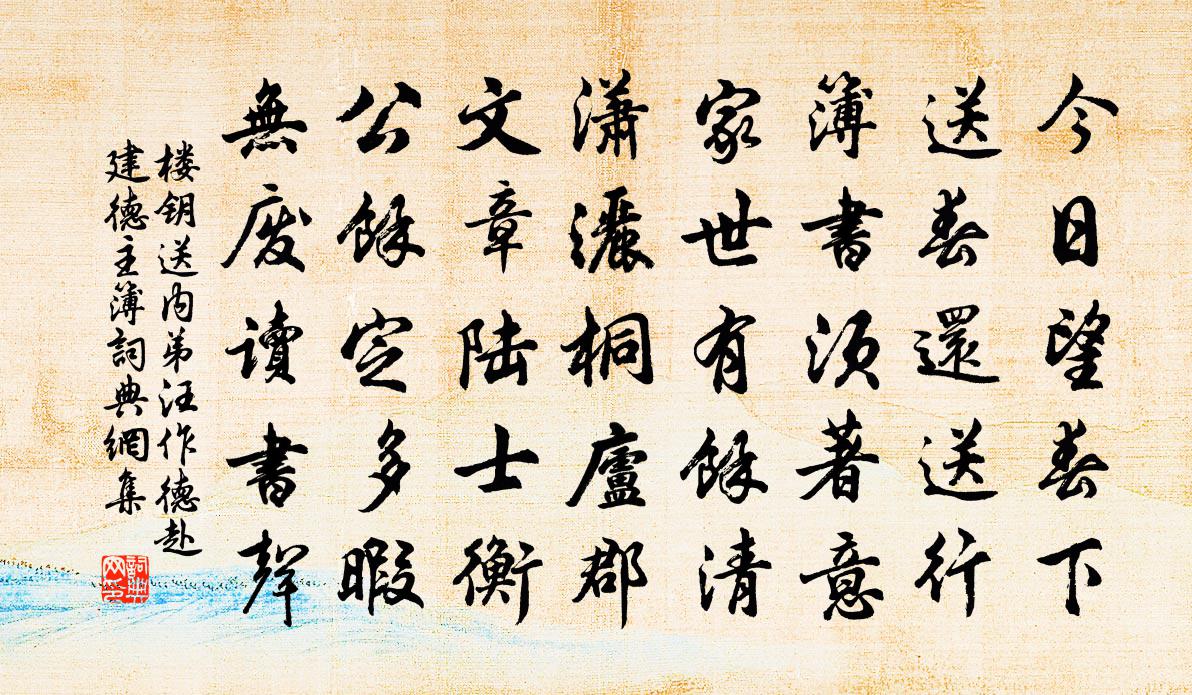 今日望春下
送春還送行
簿書須著意
家世有餘清
瀟灑桐廬郡
文章陆士衡
公餘定多暇
無废讀書聲
楼钥送内弟汪作德赴
建德主簿詞典網集